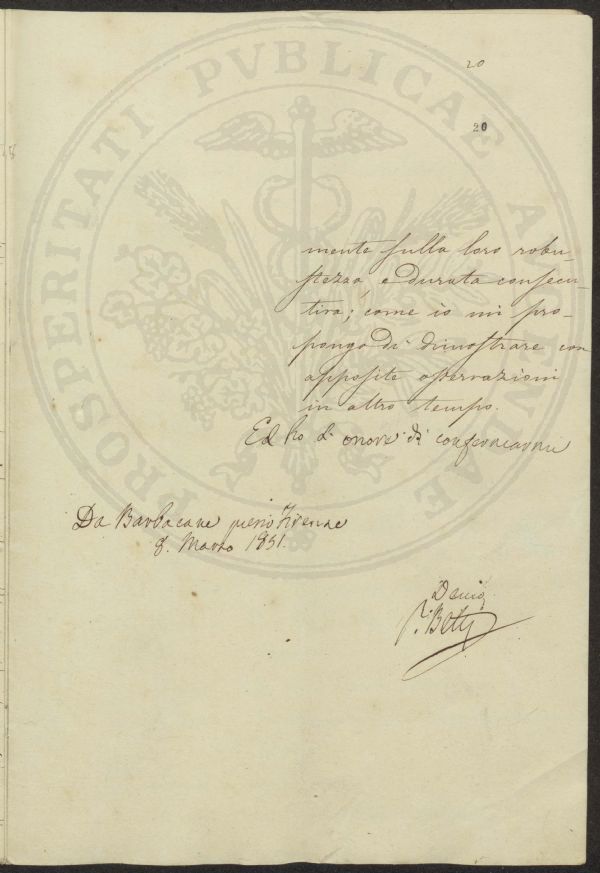 20
20
mente sulla loro robu-
stezza, e durata consecu-
tiva; come io mi pro-
pongo di dimostrare con
apposite osservazioni
in altro tempo.
Ed ho l' onore di confermarmi
Da Barbacane presso Firenze
8. Marzo 1851.
P. Betti
PROSPERITATI PVBLICAE AVGENDAE